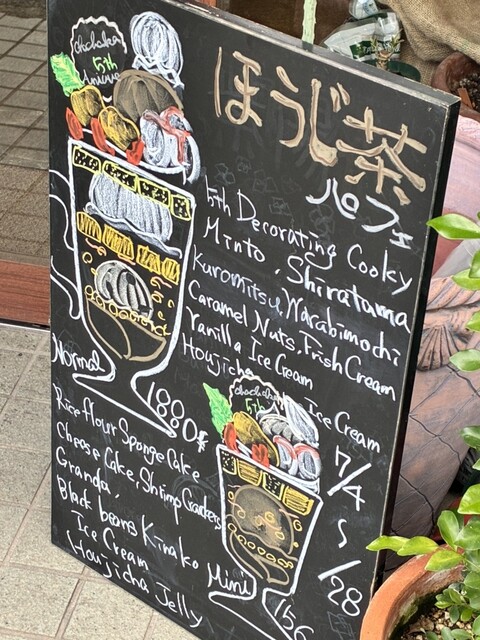 chachaka
5th
Anniv
ほうじ茶
パフェ
5th Decorating Cooky
Minto, Shiratama
Kuromitsu, Warabimochi
Caramel Nuts, Frish Cream
Vanilla Ice Cream
Houjicha Ice Cream
Normal
1880¥
chachaka
5th
7/4
~
7/28
Rice flour Sponge Cake
Cheese Cake, Shrimp Crackers
Granda,
Black beans Kinako
Ice Cream
Houjicha Jelly
Mini